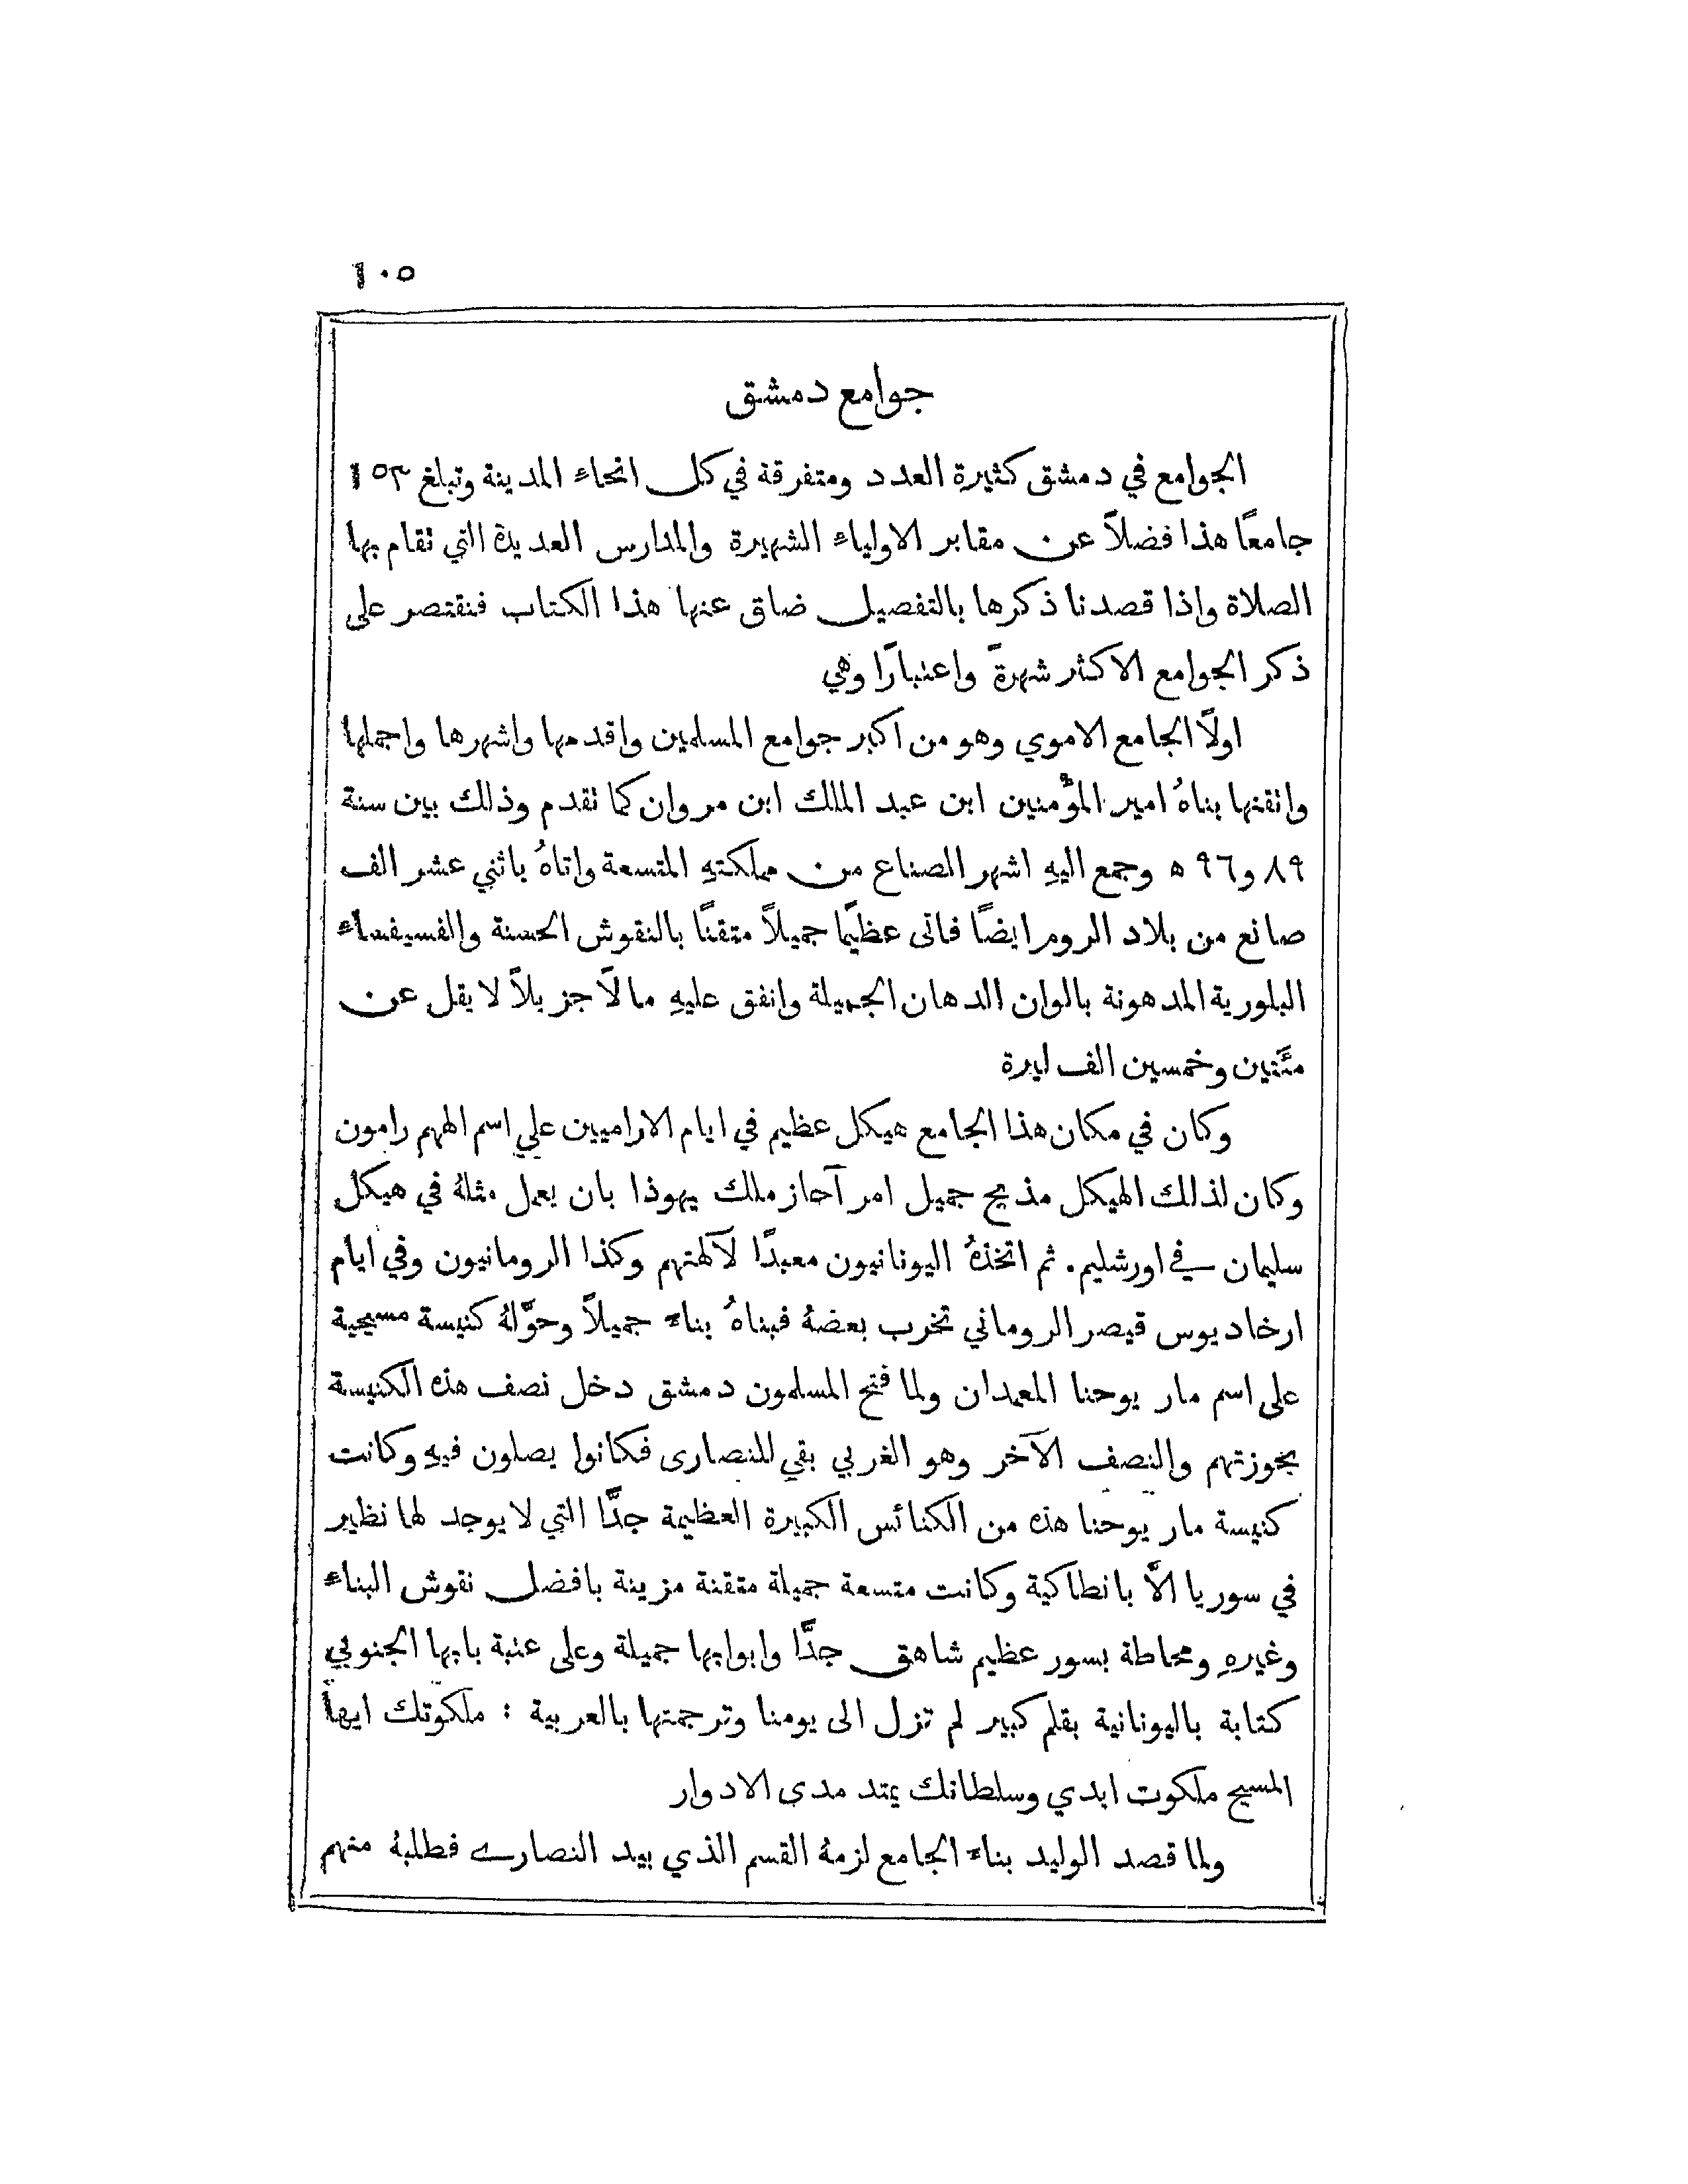 ١٠٥
جوامع دمشق
الجوامع في دمشق كثيرة العدد ومتفرقة في كل انحاء المدينة وتبلغ ١٥٣
جامعًا هذا فضلاً عن مقابر الاولياء الشهيرة والمدارس العديدة التي تقام بها
الصلاة واذا قصدنا ذكرها بالتفصيل ضاق عنها هذا الكتاب فنقتصر على
ذكر الجوامع الاكثر شهرةً واعتبارًا وهي
اولاً الجامع الاموي وهو من اكبر جوامع المسلمين واقدمها واشهرها واجملها
واتقنها بناهُ امير المؤمنين ابن عبد الملك ابن مروان كما تقدم وذلك بين سنة
٨٩ و٩٦ ه وجمع اليهِ اشهر الصناع من مملكتهِ المتسعة واتاهُ باثني عشر الف
صانع من بلاد الروم ايضًا فاتى عظيمًا جميلاً متقنًا بالنقوش الحسنة والفسيفساء
البلورية المدهونة بالوان الدهان الجميلة وانفق عليهِ مالاً جزيلاً لا يقل عن
مئتين وخمسين الف ليرة
وكان في مكان هذا الجامع هيكل عظيم في ايام الاراميين على اسم الههم رامون
وكان لذلك الهيكل مذبح جميل امر آحاز ملك يهوذا بان يعمل مثلهُ في هيكل
سليمان في اورشليم. ثم اتخذهُ اليونانيون معبدًا لآلهتهم وكذا الرومانيون وفي ايام
ارخاديوس قيصر الروماني تخرب بعضهُ فبناهُ بناءً جميلاً وحوّلهُ كنيسة مسيحية
على اسم مار يوحنا المعمدان ولما فتح المسلمون دمشق دخل نصف هذه الكنيسة
بحوزتهم والنصف الآخر وهو الغربي بقي للنصارى فكانوا يصلون فيهِ وكانت
كنيسة مار يوحنا هذه من الكنائس الكبيرة العظيمة جدًّا التي لا يوجد لها نظير
في سوريا الاَّ بانطاكية وكانت متسعة جميلة متقنة مزينة بافضل نقوش البناء
وغيرهِ ومحاطة بسور عظيم شاهق جدًّا وابوابها جميلة وعلى عتبة بابها الجنوبي
كتابة باليونانية بقلم كبير لم تزل الى يومنا وترجمتها بالعربية : ملكوتك ايها
المسيح ملكوت ابدي وسلطانك يمتد مدى الادوار
ولما قصد الوليد بناءَ الجامع لزمهُ القسم الذي بيد النصارى فطلبهُ منهم